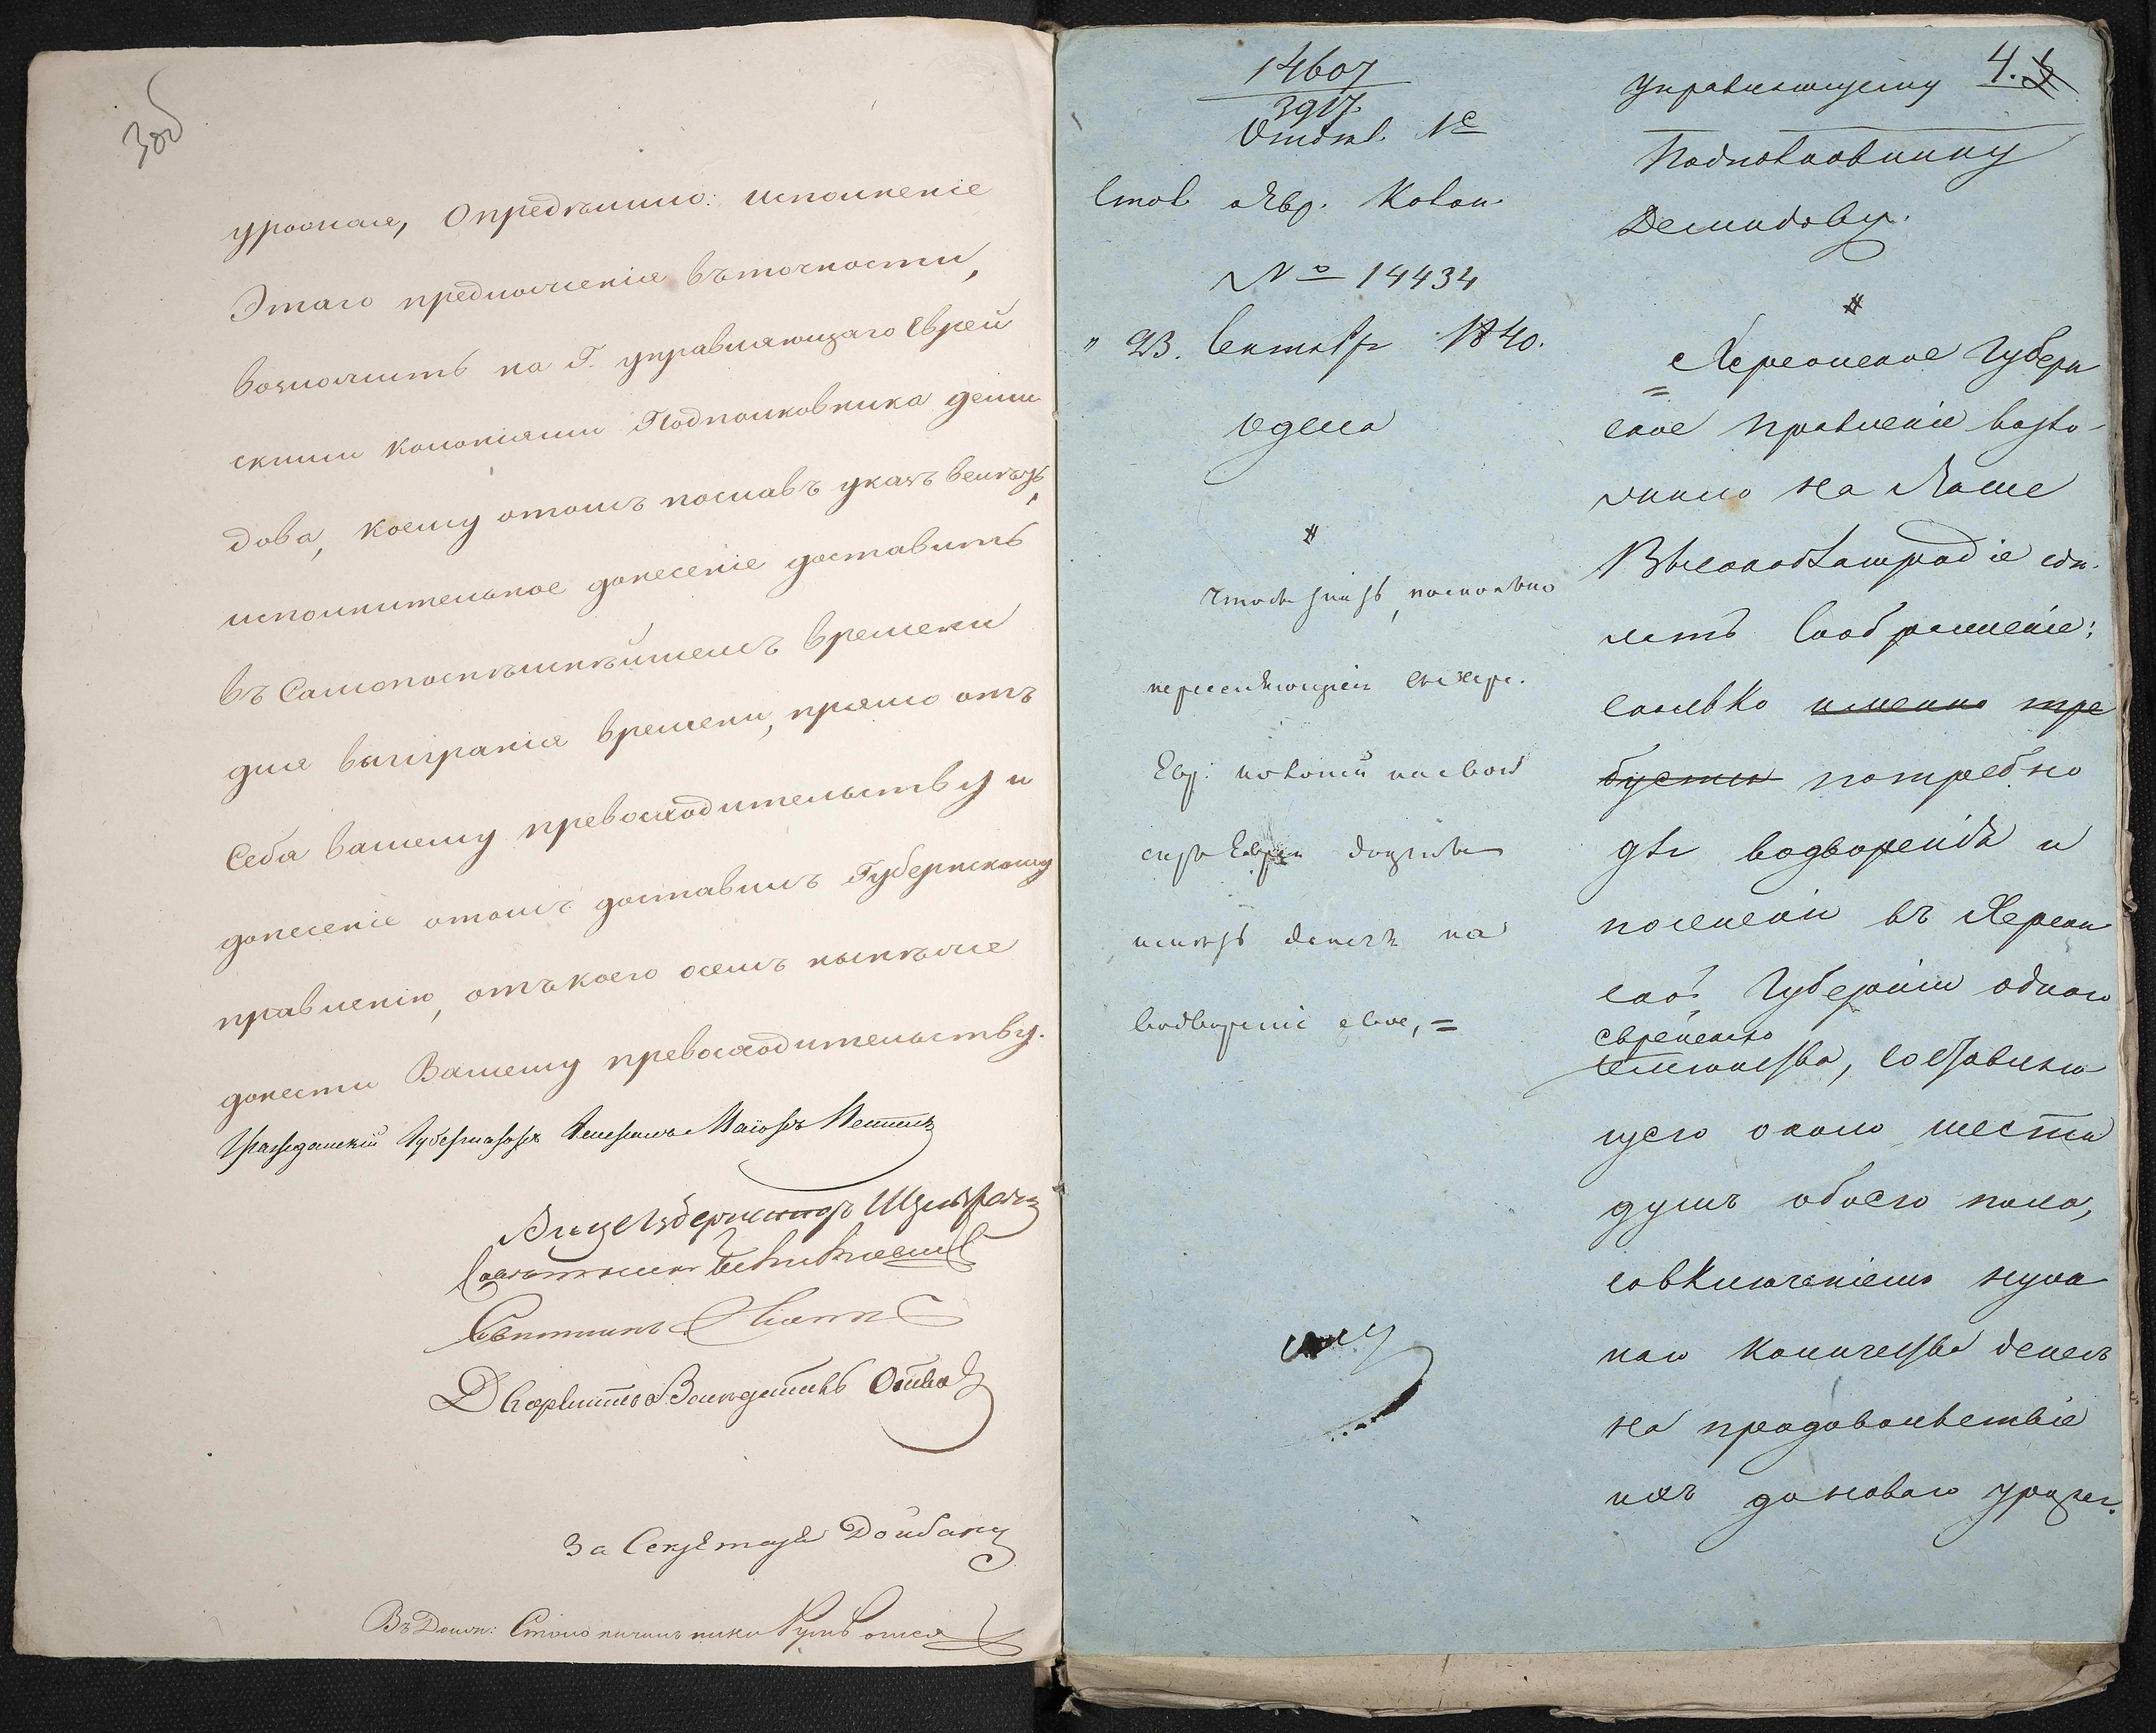 3об
урожая, Опредѣлило: исполненіе
Этаго предложенія въточности,
возложить на Г. управляющаго Еврей
скими колоніями Подполковника деми
дова, коему отомъ пославъ указъ велѣть,
исполнительное донесеніе доставить
въ Самопоспѣшнѣйшемъ времени
для выигранія времени, прямо отъ
Себя вашему превосходительству и
донесеніе отомъ доставилъ Губернскому
правленію, откоего осемъ нынѣже
донести Вашему превосходительству.
Гражданскій Губернаторъ Генералъ Маіоръ
ВицеГубернаторъ
Совѣтникъ
Совѣтникъ
За Секретаря Дойбану
Столоначальника
14607
3917
Отдѣл. №
Стол Евр. Колон.
№ 14434
" 23. Сентябр 1840.
Одесса
#
чтобы
переселяющіеся въ Херс.
Евр. колоніи на свой
счетъ Евреи
имѣть денегъ на
водвореніе свое, =
4.
Управляющему
Подполковнику
Демидову.
#
= Херсонское Губерн
ское Правленіе возло-
жило на Ваше
Высокоблагородіе сдѣ-
лать Соображеніе:
сколько именно тре
буется потребно
для водворенія и
поселенія въ Херсон
ской Губерніи одного
еврейскаго
семейства, составляю
щего около шести
душъ обоего пола,
совключеніемъ нуж
наго количества денегъ
на продовольствіе
ихъ до новаго урожая.